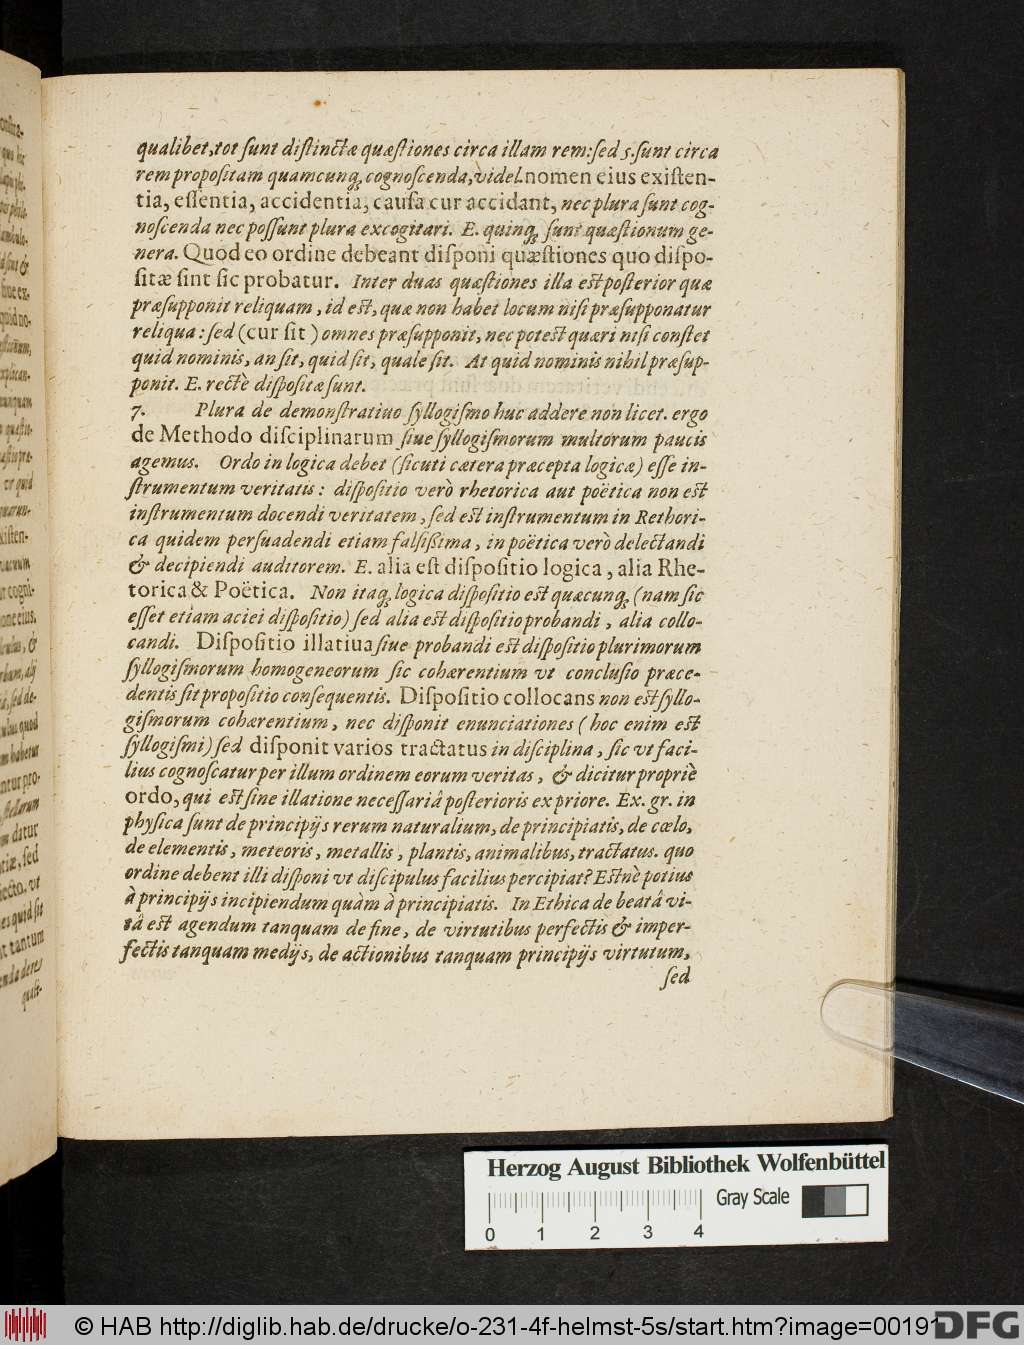 qualibet, tot ſunt diſtinctæ quæſtiones circa illam rem: ſed 5. ſunt circa
rem propoſitam quamcunq; cognoſcenda, videl. nomen eius exiſten-
tia, eſſentia, accidentia, cauſa cur accidant, nec plura ſunt cog-
noſcenda nec poſſunt plura excogitari. E. quinq; ſunt quæſtionum ge-
nera. Quod eo ordine debeant diſponi quæſtiones quo diſpo-
ſitæ ſint ſic probatur. Inter duas quæſtiones illa eſt poſterior quæ
præſupponit reliquam, id eſt, quæ non habet locum niſi præſupponatur
reliqua: ſed (cur ſit) omnes præſupponit, nec poteſt quæri niſi conſtet
quid nominis, an ſit, quid ſit, quale ſit. At quid nominis nihil præſup-
ponit. E. rectè diſpoſitæ ſunt.
7. Plura de demonſtratiuo ſyllogiſmo huc addere non licet. ergo
de Methodo diſciplinarum ſiue ſyllogiſmorum multorum paucis
agemus. Ordo in logica debet (ſicuti cætera præcepta logicæ) eſſe in-
ſtrumentum veritatis: diſpoſitio verò rhetorica aut poëtica non eſt
inſtrumentum docendi veritatem, ſed eſt inſtrumentum in Rethori-
ca quidem perſuadendi etiam falſiſſima, in poëtica verò delectandi
& decipiendi auditorem. E. alia eſt diſpoſitio logica, alia Rhe-
torica & Poëtica. Non itaq; logica diſpoſitio eſt quæcunq; (nam ſic
eſſet etiam aciei diſpoſitio) ſed alia eſt diſpoſitio probandi, alia collo-
candi. Diſpoſitio illatiua ſiue probandi eſt diſpoſitio plurimorum
ſyllogiſmorum homogeneorum ſic cohærentium vt concluſio præce-
dentis ſit propoſitio conſequentis. Diſpoſitio collocans non eſt ſyllo-
giſmorum cohærentium, nec diſponit enunciationes (hoc enim eſt
ſyllogiſmi) ſed diſponit varios tractatus in diſciplina, ſic vt faci-
lius cognoſcatur per illum ordinem eorum veritas, & dicitur propriè
ordo, qui eſt ſine illatione neceſſariâ poſterioris ex priore. Ex. gr. in
phyſica ſunt de principijs rerum naturalium, de principiatis, de cœlo,
de elementis, meteoris, metallis, plantis, animalibus, tractatus. quo
ordine debent illi diſponi vt diſcipulus facilius percipiat? Eſtnè potius
à principijs incipiendum quàm à principiatis. In Ethica de beatâ vi-
tâ eſt agendum tanquam de fine, de virtutibus perfectis & imper-
fectis tanquam medijs, de actionibus tanquam principijs virtutum,
ſed
Herzog August Bibliothek Wolfenbüttel
Gray Scale
0 1 2 3 4
© HAB http://diglib.hab.de/drucke/o-231-4f-helmst-5s/start.htm?image=00191
DFG